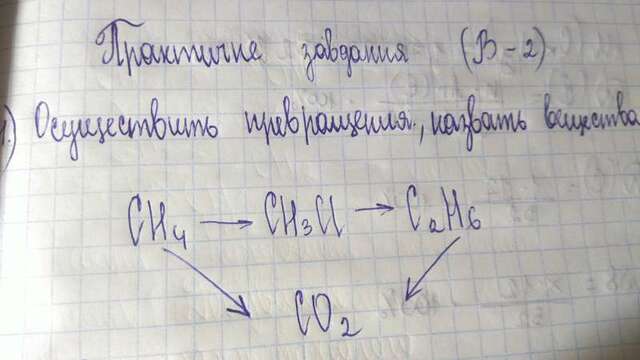 Практичне завдания (В-2)
1.) Осуществить превращения, назвать вещества
CH₄ → CH₃Cl → C₂H₆
CO₂